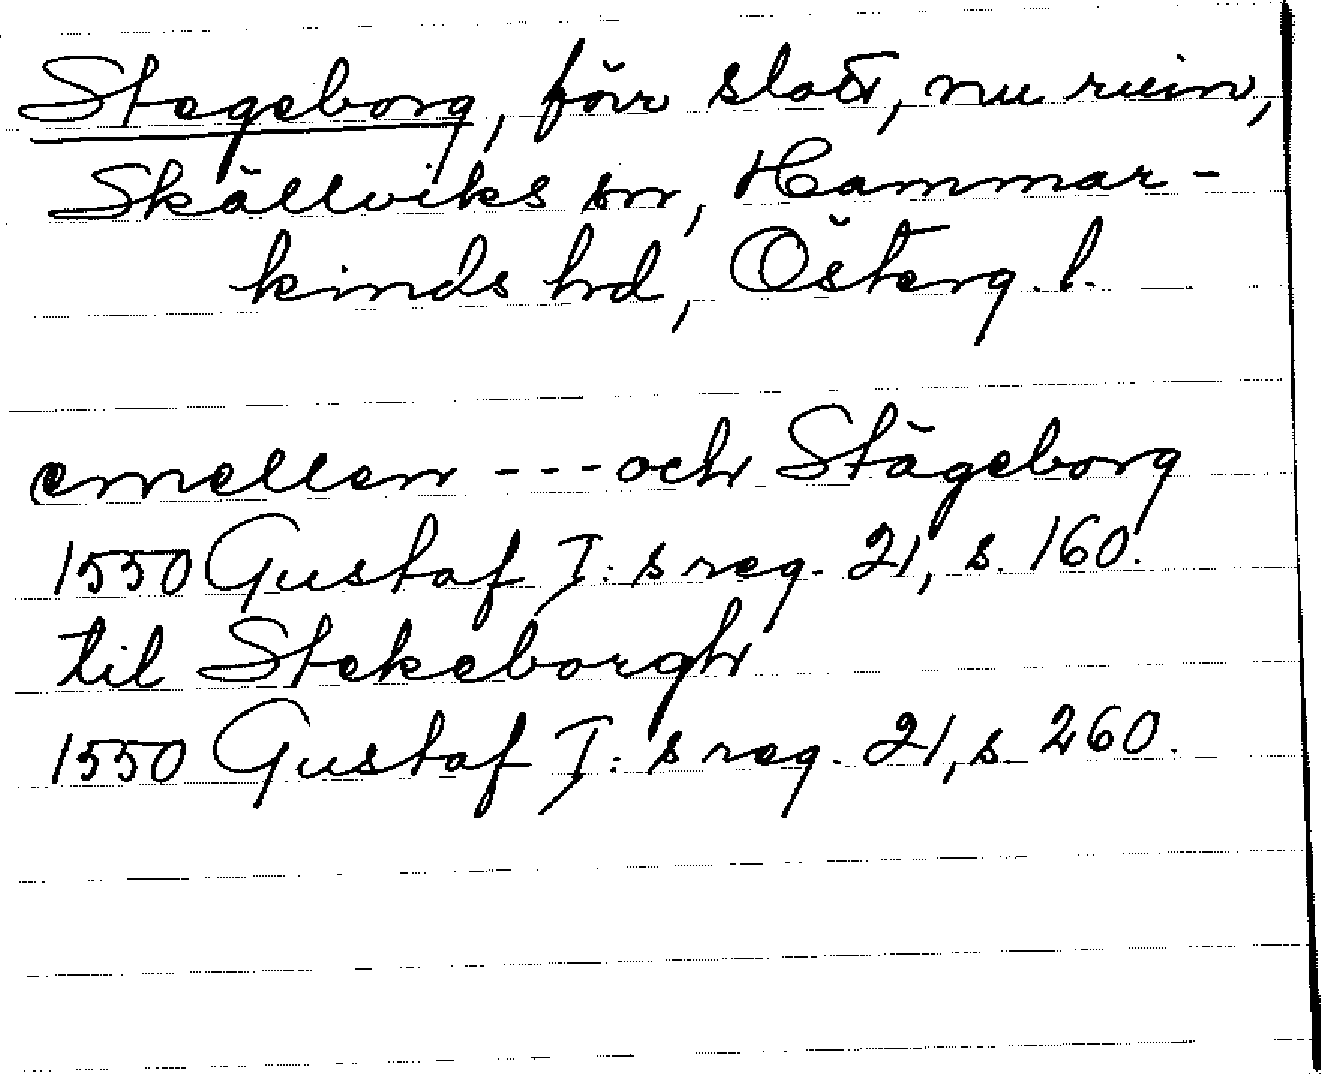 Stegeborg, förr slott, nu ruin,
Skällviks sn, Hammar-
kinds hd, Österg. l.
emellen --- och Stägeborg
1550 Gustaf I:s reg. 21, s. 160.
til Stekeborgh
1550 Gustaf I:s reg. 21, s. 260.